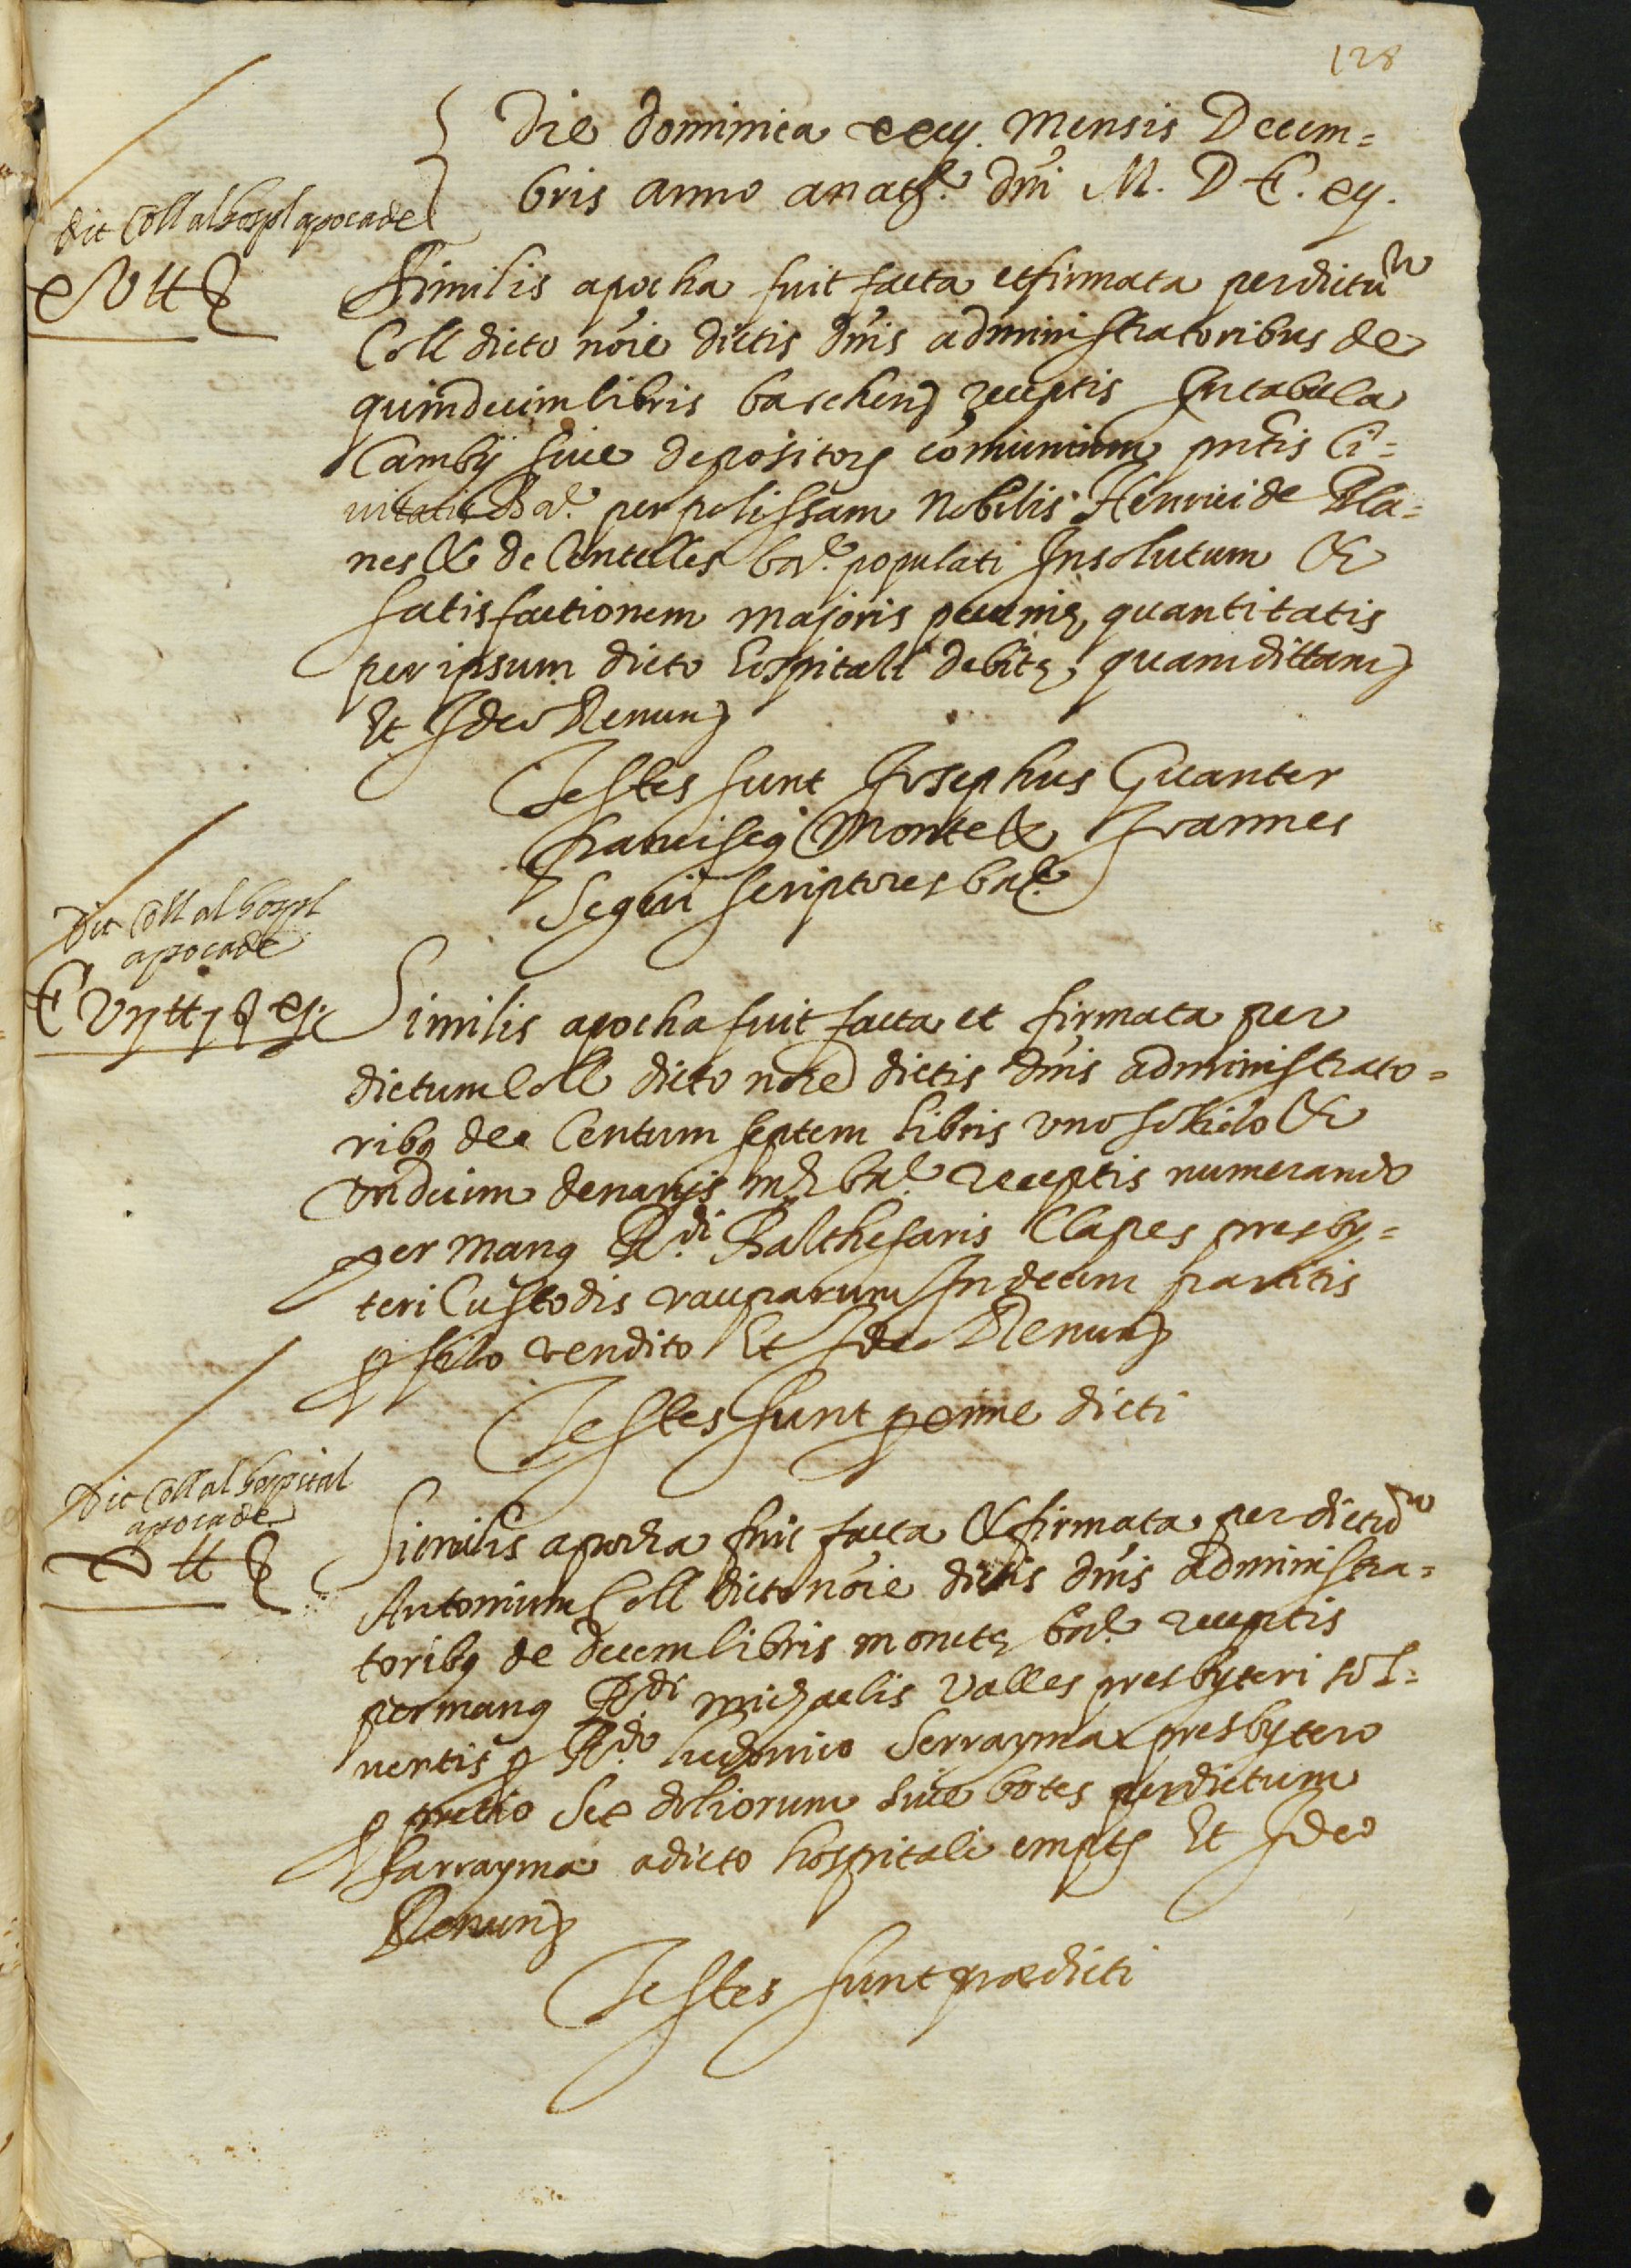 128
Die dominica xxiij. mensis Decem=
bris anno a natẽ dñi M. D C. xij.
dit Coll al hospl apoca de
XV ll ẞ
Similis apocha fuit facta et firmata per dictũ
Coll dicto nõie dictis dñis administratoribus de
quindecim libris barchen̄ receptis In tabula
Cambij sive depositorȝ comunium pñtis Ci=
vitatis Barẽ per polissam Nobilis Henrici de Pla=
nes & de Centelles barẽ populati In solutum &
satisfactionem majoris pecuniȩ quantitatis
per ipsum dicto hospitali debitȩ, quam dittam
Et Ideo Renun
Testes sunt Josephus Guanter
Franciscꝯ Monte & Joannes
Segui scriptores barẽ
Dit Coll al hospl
apoca de
C Vij ll j ẞ xj.
Similis apocha fuit facta et firmata per
dictum Coll dicto nõie dictis dñis administrato=
ribꝯ de Centum septem libris uno solido &
undecim denarijs barẽ receptis numerando
per manꝯ R.di Balthesaris Clapes presby=
teri Custodis rauparum In decem partitis
ꝓ filo vendito Et Ideo Renun
Testes sunt proxime dicti
Dit Coll al hospital
apoca de
X ll ẞ
Similis apocha fuit facta & firmata per dictũ
Antonium Coll dicto nõie dictis dñis administra=
toribꝯ de decem libris monetȩ barẽ receptis
per manꝯ R.di Michaelis Valles presbyteri sol=
ventis ꝓ R.do Ludovico Serrayma presbytero
ꝓ pretio Sex doliorum sive botes per dictum
Sarrayma a dicto hospitali emptȝ Et Ideo
Renun
Testes sunt prædicti